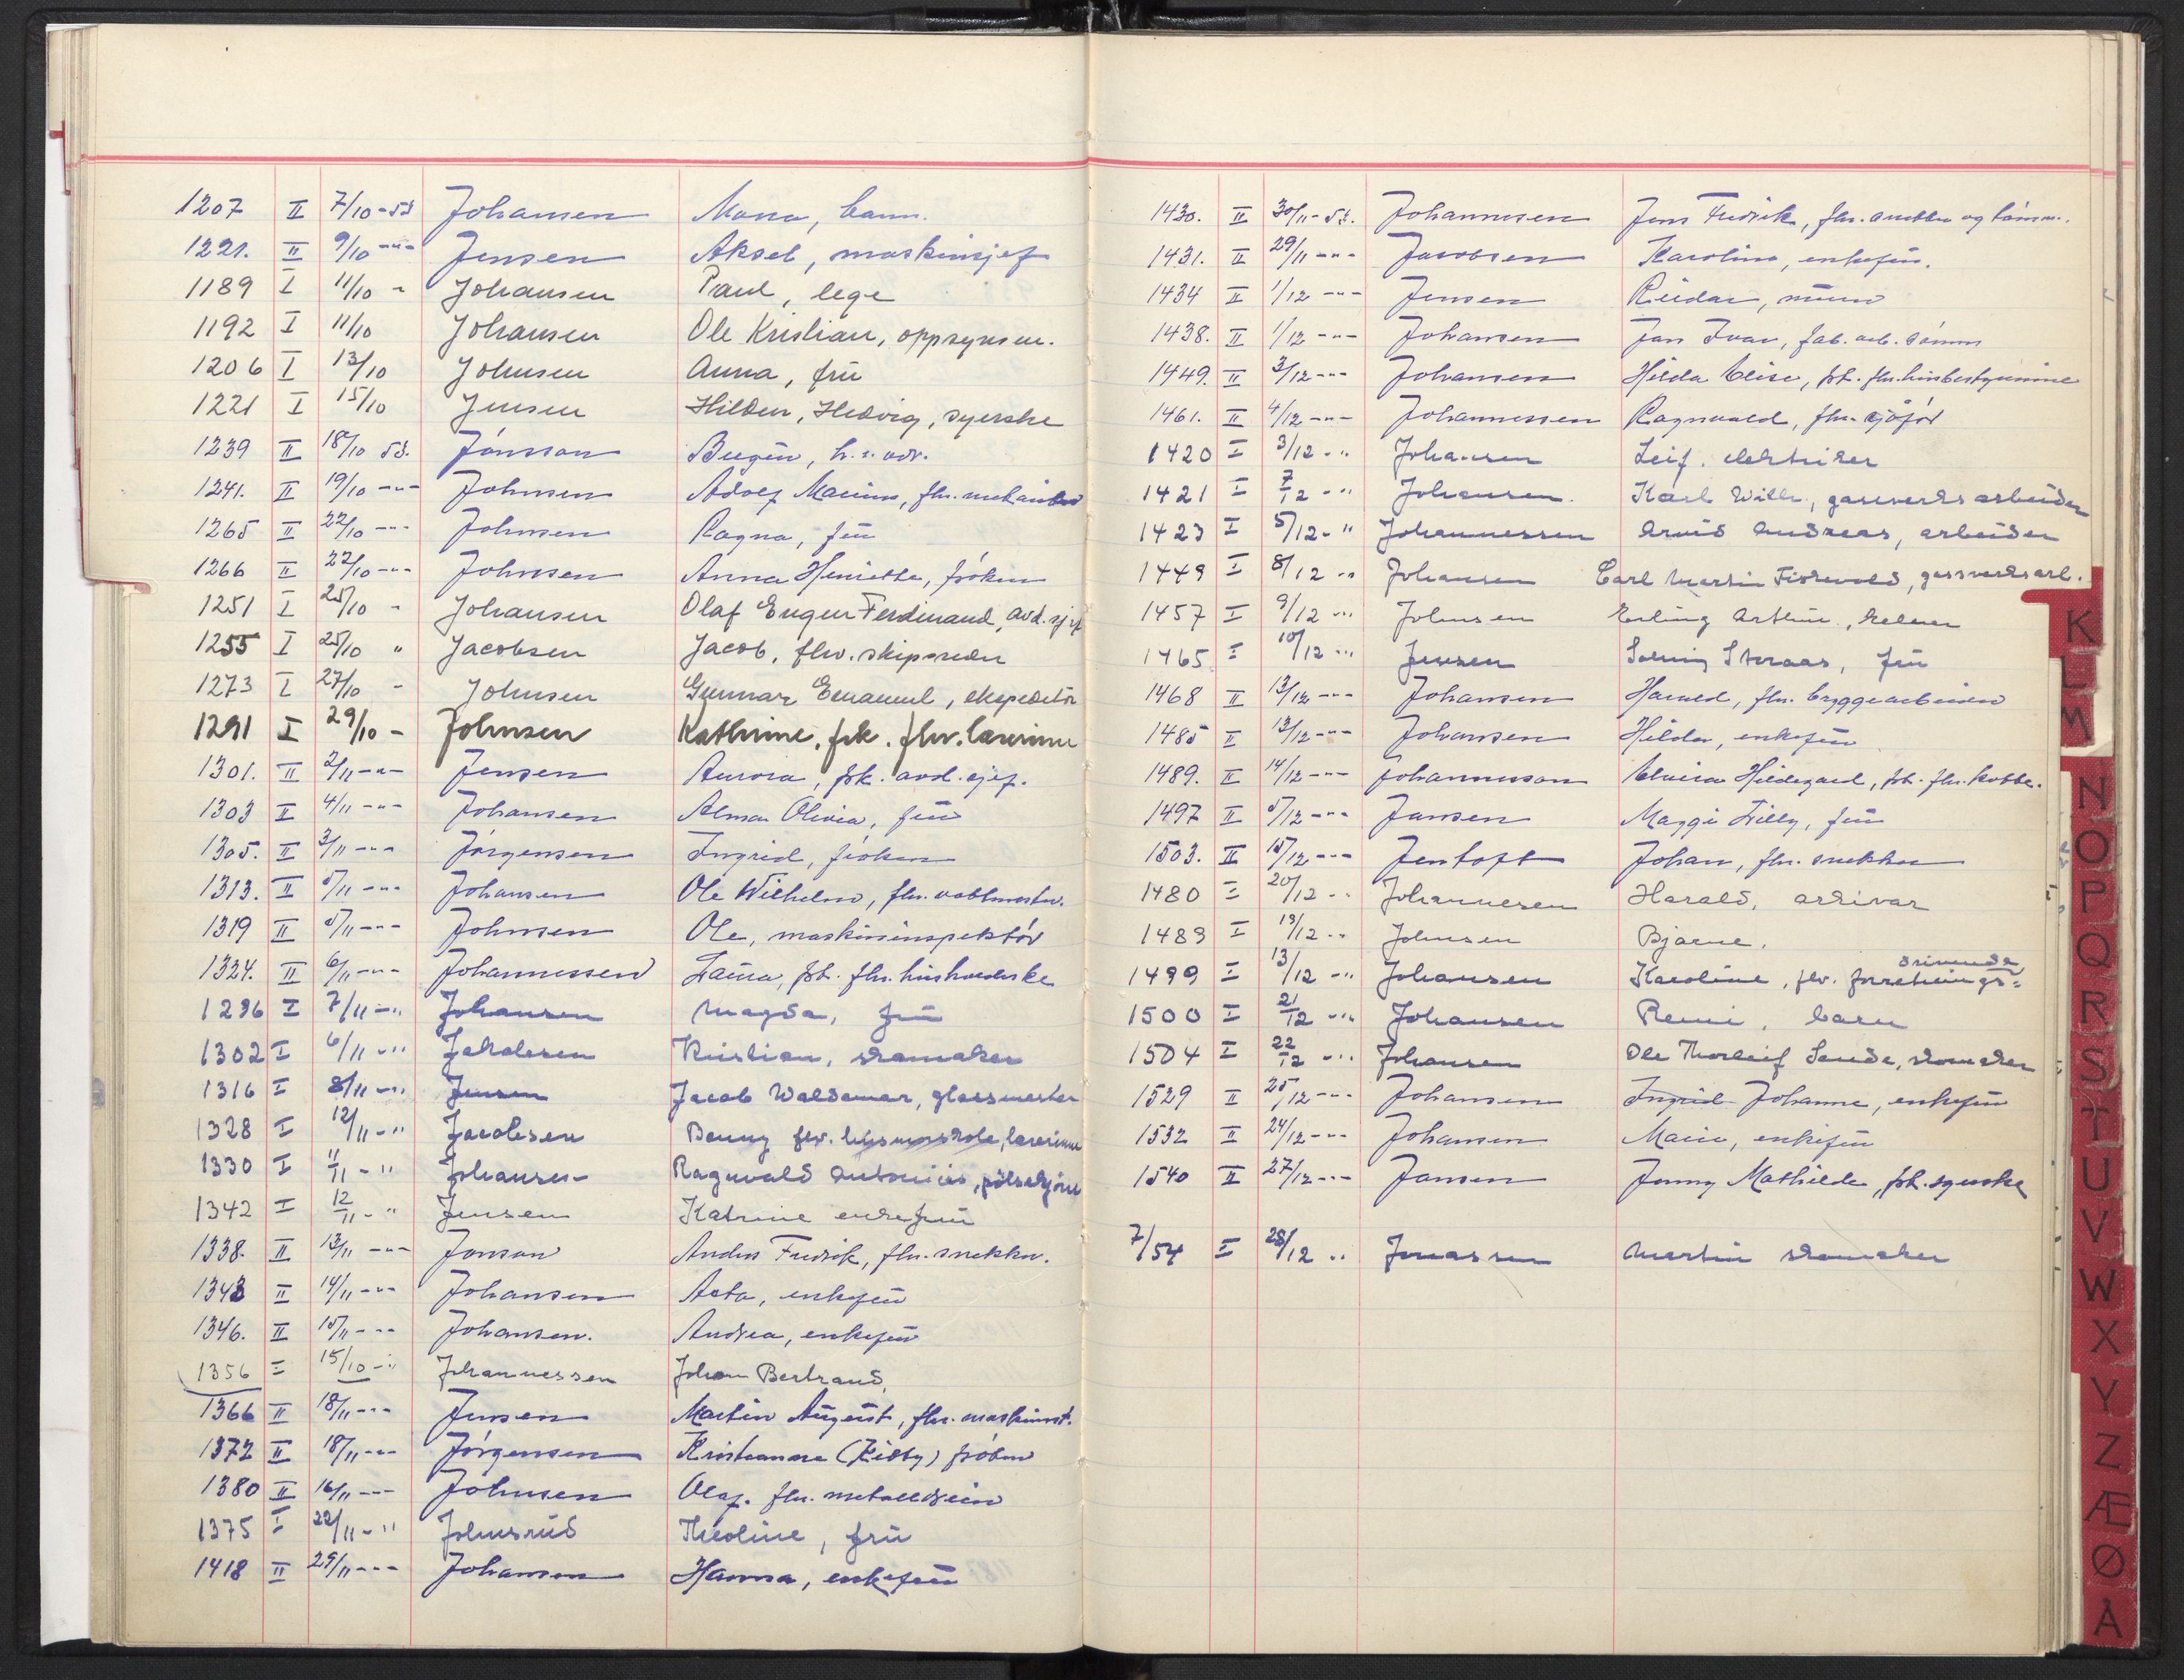 1207 II 7/10-53 Johansen Mona, barn.
1221. II 9/10 -"- Jensen Aksel, maskinsjef
1189 I 11/10 - Johansen Paul, lege
1192 I 11/10 Johansen Ole Kristian, oppsynsm.
1206 I 13/10 Johnsen Anna, frü
1221 I 15/10 Jensen Hildur, Hedvig, syerske
1239 II 18/10 53. Jónsson
1241. II 19/10 -"- Johnsen Adolf Marius, fhv.
1265 II 22/10 -"- Johnsen Ragna, frü
1266 II 22/10 -"- Johnsen Anna Henriette, fróken
1251 I 25/10 - Johansen Olaf Eugen Ferdinand, avd. sjef
1255 I 25/10 " Jacobsen Jacob, fhv. skipsreder
1273 I 27/10 - Johnsen Gunnar Emanuel, ekspeditör
1291 I 29/10 - Johnsen Kathrine, frk. fhv. lærerinne
1301. II 2/11 -"- Jensen Aurora, frk. avd. sjef.
1303 II 4/11 -"- Johansen Alma Olivia, frü
1305. II 3/11 -"- Jörgensen Ingrid, fróken
1313. II 5/11 -"- Johansen Ole Wilhelm, fhv.
1319 II 5/11 -"- Johnsen Ole, maskininspektór
1324. II 6/11 -"- Johannessen Laura, frk. fhv. hüsholderske
1296 I 7/11 -" Johansen Magda, frü
1302 I 6/11 -" Jakobsen Kristian, skomaker
1316 I 8/11 -" Jensen Jacob Waldemar, glassmester
1328 I 12/11 -" Jacobsen Benny fhv. lærerinne
1330 I 11/11 - " Johansen Ragnvald Antonius,
1342 I 12/11 - " Jensen Katrine enkefrü
1338. II 13/11 -"- Jonson Anders Fredrik, fhv. snekker.
1343 II 14/11 -"- Johansen Asta, enkefrü
1346. II 15/11 -"- Johansen. Andrea, enkefrü
1356 I 15/10 -" Johannessen Johan Bertrand,
1366 II 18/11 -"- Jensen Martin Aügüst, fhv. maskinist.
1372 II 18/11 -"- Jórgensen Kristianna (Kitty) fróken
1380 II 16/11 -"- Johnsen Olaf. fhv.
1375 I 22/11 - " Johnsrüd Theoline, frü
1418 II 29/11 -"- Johansen Hanna, enkefrü
1430. II 30/11-53. Johannesen Jens Fredrik, fhv. snekker og tómm.
1431. II 29/11 -"- Jacobsen Karoline, enkefrü.
1434 II 1/12 -"- Jensen Reidar, mürer
1438. II 1/12 -"- Johansen Jan Ivar, fab. arb. sónn
1449. II 3/12 -"- Johansen Hilda Elise, frk. fhv. hüsbestyrerinne
1461. II 4/12 -"- Johannessen Ragnvald, fhv. sjåfór
1420 I 3/12 - " Johansen Leif. elektriker
1421 I 7/12 - " Johansen. Karl Wilh., gassverksarbeider
1423 I 5/12 - " Johannessen Arvid Andreas, arbeider
1449 I 8/12 " Johansen Carl Martin Fiskvold, gassverksarb.
1457 I 9/12 -" Johnsen Erling Arthür, kelner
1465 I 10/12 -" Jensen Solveig frü
1468 II 13/12 -"- Johansen Harald, fhv. bryggearbeider
1485 II 13/12 -"- Johansen Hilda, enkefrü
1489. II 14/12 -"- Johannesson Hildegard, frk. fhv.
1497 II 5/12 -"- Jansen Maggi Lilly, frü
1503. II 15/12 -"- Jentoft Johan, fhv. snekker
1480 I 20/12 - " Johannesen Harald, arkivar
1489 I 19/12 - " Johnsen Bjarne.
1499 I 13/12 - " Johansen Karoline, fhv. forretnings=
drivende
1500 I 21/12 -" Johansen barn
1504 I 22/12 - " Johansen Ole Thorleif skomaker
1529 II 25/12 -"- Johansen Ingrid Johanne, enkefrü
1532 II 24/12 -"- Johansen Marie, enkefrü
1540 II 27/12 -"- Jansen Jenny Mathilde, frk. syerske
7/54 I 28/12 " Jonassen Martin skomaker
K
L
M
N
O
P
Q
R
S
T
U
V
W
X
Y
Z
Æ
Ø
Å